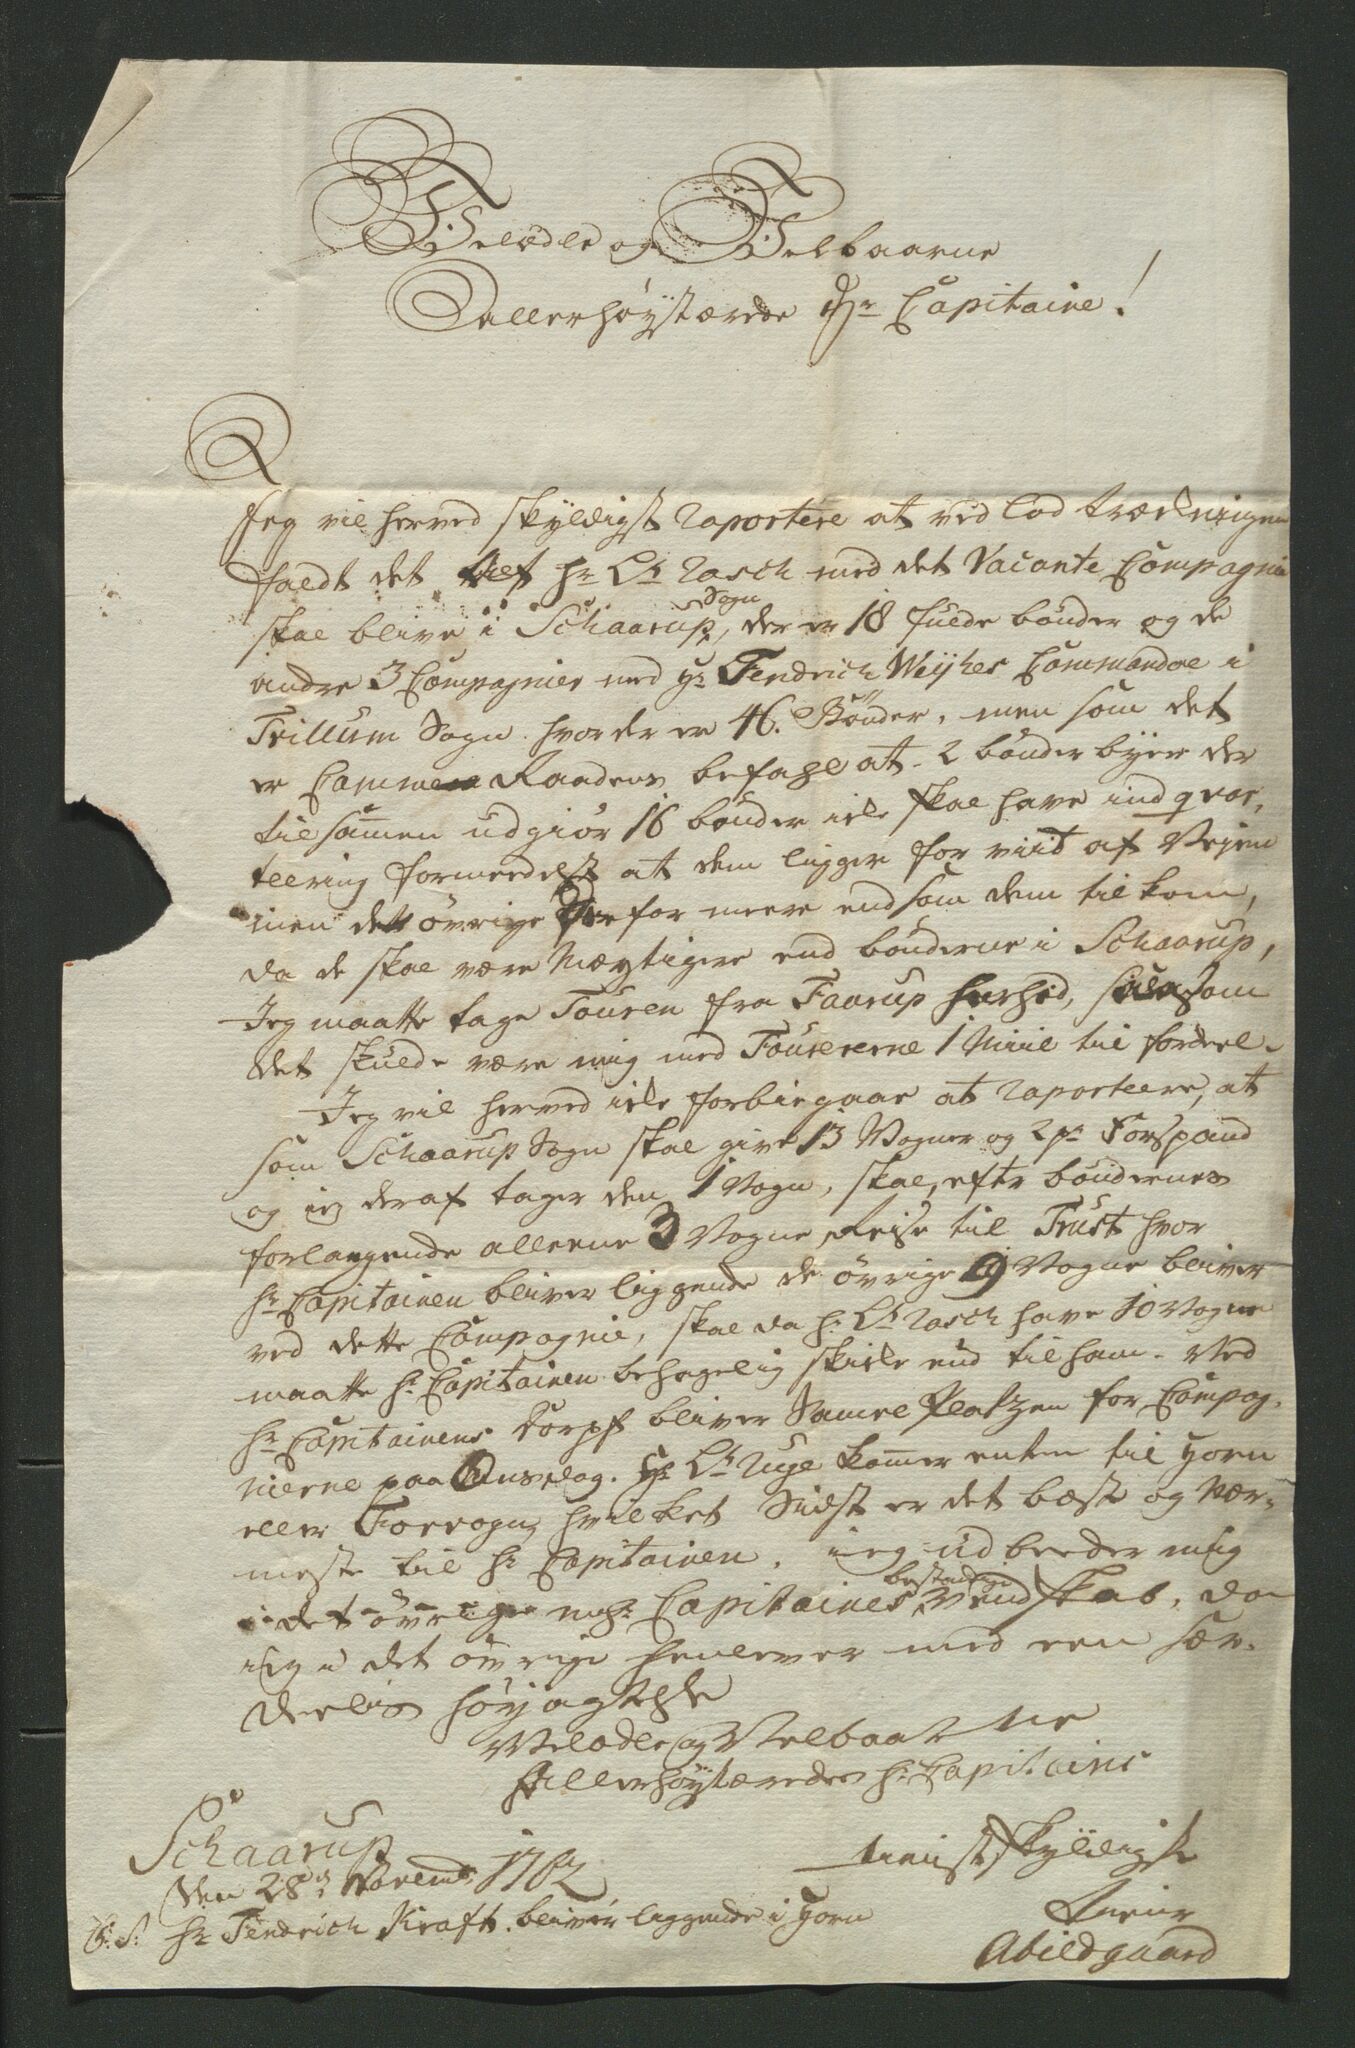 Velædle og Velbaarne
Allerhøystærede Hr Capitaine!
Jeg vil herved skyldigst raportere at ved Lod trækningen
faldt det at Hr Lt Rasch med det Vacante Compagnie
skal blive i Schaarup Sogn, der er 18 fulde bønder og de
andre 3 Compagnier med Hr Fendrich Weyhes Commandoe i
Trillum Sogn hvor der er 46. Bønder, men som det
er Cammer Raadens befahl at 2 bønder byer der
tilsammen udgiør 16 bønder icke skal have indqvar,
teering formeedelst at dem ligger for viit af Vejen
men dett øvrige faar meere end som dem tilkom,
da de skal være Mægtigere end bønderne i Schaarup,
Jeg maatte tage Touren fra Faarup herhid, saasom
det skulde være mig med Fourererne 1 Miil til fordeel.
Jeg vil herved icke forbiegaae at raporteere, at
som Schaarup Sogn skal give 13 Vogner og 2 pr Forspand
og jeg deraf tager den 1 Vogn, skal, efter bøndernes
forlangende alleene 3 Vogne Reise til Trust hvor
Hr Capitainen bliver liggende de øvrige 9 Vogne bliver
ved dette Compagnie, skal da Hr Lt Rasch have 10 Vogne
maatte Hr Capitainen behagelig skicke end til ham. Ved
Hr Capitainens Dorpf bliver Samel Platzen for Compag,
nierne paa Onsdag. Hr Lt Ruge kommer enten til Horn
eller Forvogn, hvilket Sidst er det bæste og Nær,
meste til Hr Capitainen. ieg udbeeder mig
i det øvrige Hr Capitaines bestandige Vendskab, da
ieg i det øvrige henlever med een sær,
deelis høyagtelse
Velædle og Velbaarne
Allerhøystæredes Hr Capitains
Schaarup
den 28de Novemb. 1762
tienstskyldigste
Tiener
Abildgaard
P: S: Hr Fendrich Kraft bliver liggende i Horn